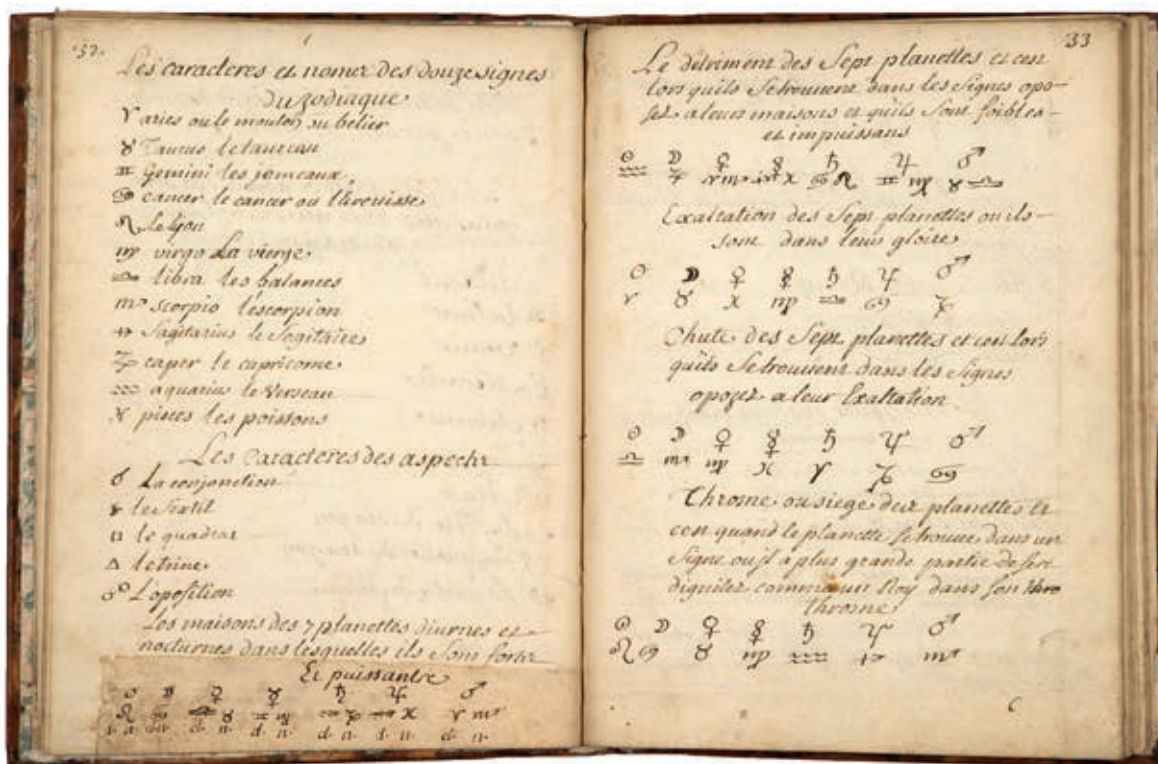 32.
Les caracteres et nomz des douze signes
du zodiaque
♈ aries ou le mouton ou belier
♉ Taurus le taureau
♊ Gemini les jemeaux.
♋ cancer le cancer ou l'Ecreuisse
♌ le lyon
♍ virgo La vierge
♎ libra les balances
♏ scorpio l'escorpion
♐ Sagitarius le Sagitaire
♑ caper le capricorne
♒ aquarius le Verseau
♓ pisces les poissons
Les Caracteres des aspectz
☌ La conjonction
le Sextil
□ le quadrat
△ le trine
☍ L'oposition
Les maisons des 7 planettes diurnes et
nocturnes dans lesquelles ils Sont fortz
Et puissantz
☉ ☽ ♀ ☿ ♄ ♃ ♂
♌ ♋ ♎ ♉ ♊ ♍ ♒ ♑ ♐ ♓ ♈ ♏
d. n. d. n. d. n. d. n. d. n. d. n.
33
Le detriment des Sept planettes et cen
lors quils Se trouvent dans les Signes opo-
sez a leurs maisons et quils Sont foibles
et impuissans
☉ ☽ ♀ ☿ ♄ ♃ ♂
♒ ♑ ♈ ♏ ♐ ♓ ♋ ♌ ♊ ♍ ♉ ♎
Exaltation des Sept planettes ou ils
sont dans leur gloire
☉ ☽ ♀ ☿ ♄ ♃ ♂
♈ ♉ ♓ ♍ ♎ ♋ ♑
Chute des Sept planettes et cen lors
quils Se trouvent dans les Signes
opozez a leur Exaltation
☉ ☽ ♀ ☿ ♄ ♃ ♂
♎ ♏ ♍ ♓ ♈ ♑ ♋
Throsne ou siege des planettes et
cen quand le planette Se trouve dans un
Signe ou Jl a plus grande partie de ses
dignitez comme un Roy dans Son thro
throsne
☉ ☽ ♀ ☿ ♄ ♃ ♂
♌ ♋ ♉ ♍ ♒ ♐ ♏